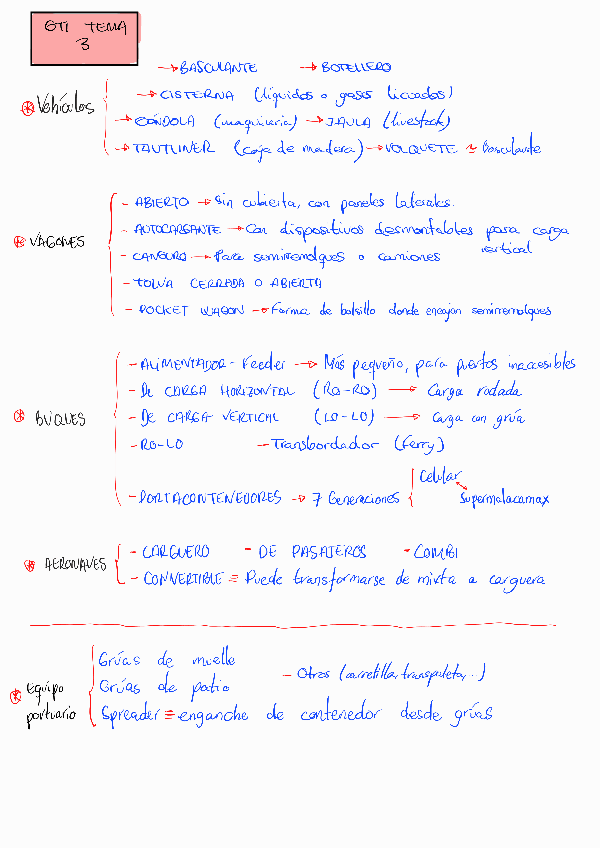 GTI TEMA
3
→ BASCULANTE → BOTELLERO
* Vehículos → CISTERNA (líquidos o gases licuados)
→ GÓNDOLA (maquinaria) → JAULA (livestock)
→ TAUTLINER (caja de madera) → VOLQUETE ≈ Basculante
- ABIERTO → Sin cubierta, con paneles laterales.
* VAGONES - AUTOCARGANTE → Con dispositivos desmontables para carga vertical
- CANGURO → Para semirremolques o camiones
- TOLVA CERRADA O ABIERTA
- POCKET WAGON → Forma de bolsillo donde encajan semirremolques
- ALIMENTADOR - Feeder → Más pequeño, para puertos inaccesibles
- DE CARGA HORIZONTAL (RO-RO) → Carga rodada
* BUQUES - DE CARGA VERTICAL (LO-LO) → Carga con grúa
- RO-LO - Transbordador (Ferry)
- PORTACONTENEDORES → 7 Generaciones { Celular
Supermalacamax
* AERONAVES - CARGUERO - DE PASAJEROS - COMBI
- CONVERTIBLE = Puede transformarse de mixta a carguera
Grúas de muelle
* Equipo portuario Grúas de patio - Otros (carretilla, transpaleta, ..)
Spreader = enganche de contenedor desde grúas